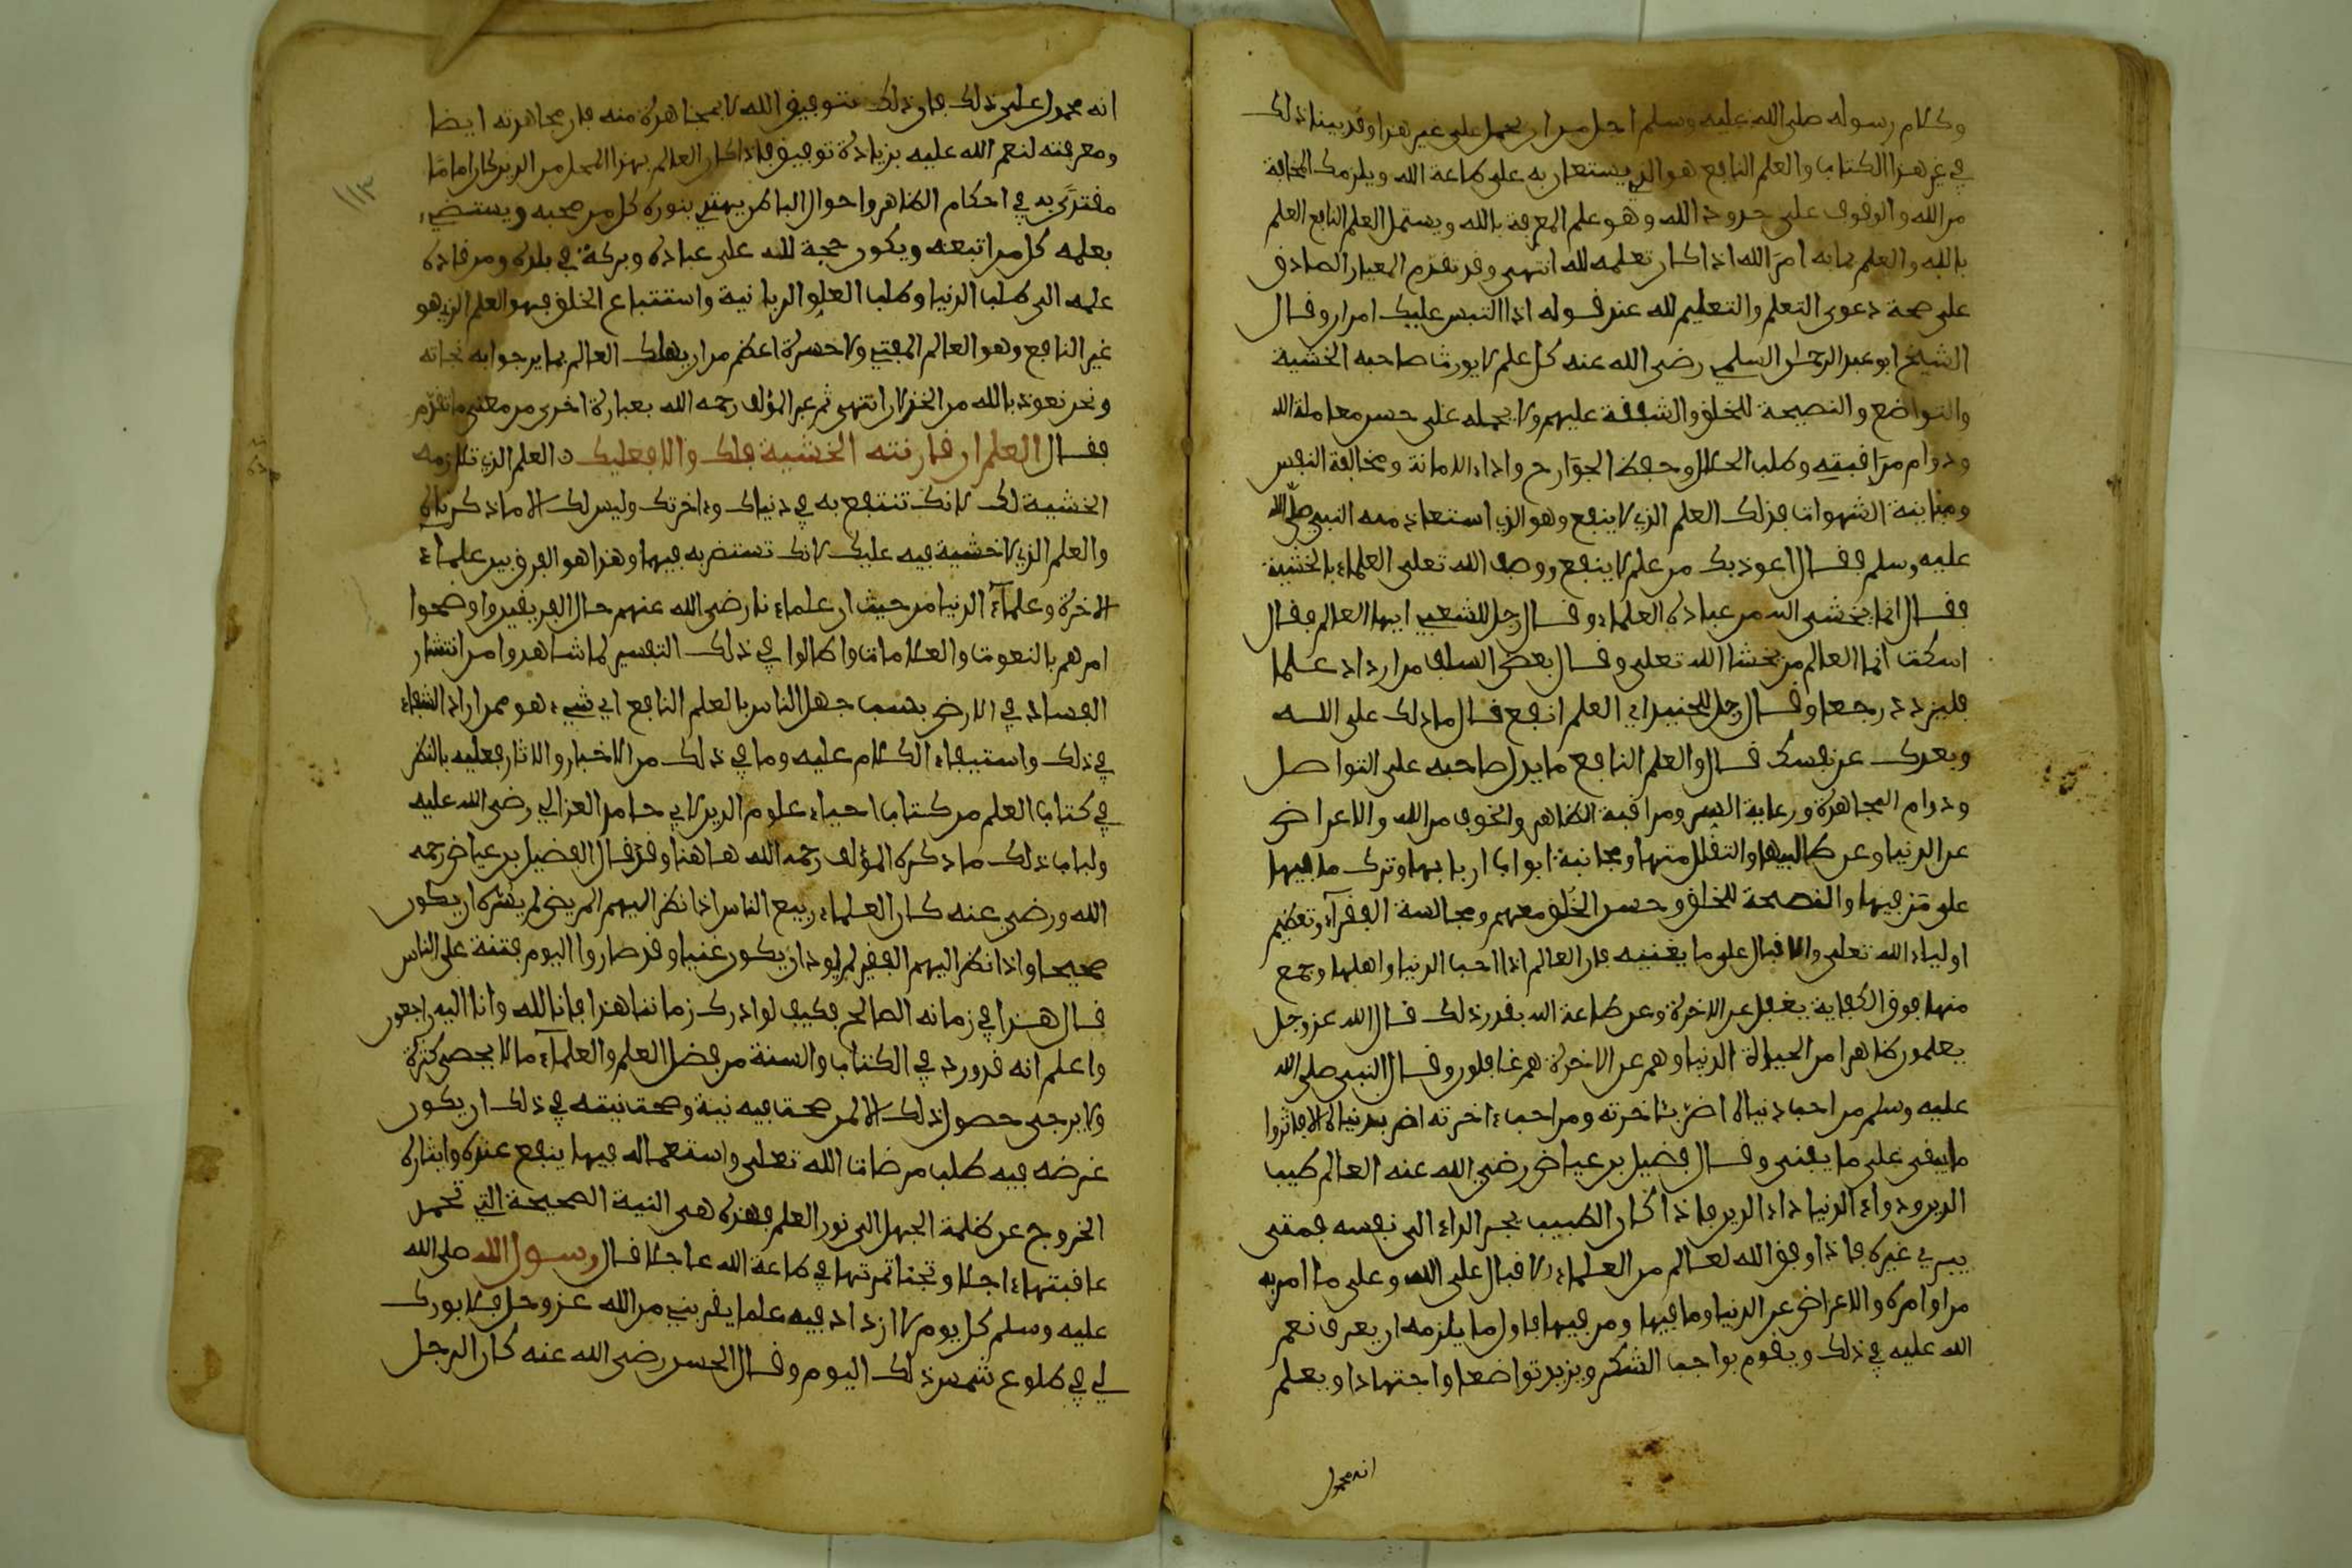 وكلام رسوله صلى الله عليه وسلم اجل من ان يحمل على غير هذا وقد بينا ذلك
في غير هذا الكتاب والعلم النافع هو الذي يستعان به على طاعة الله ويلزمك المخافة
من الله والوقوف على حدود الله وهو علم المعرفة بالله ويشتمل العلم النافع العلم
بالله والعلم بما به امر الله اذا كان تعلمه لله انتهى وقد تقدم المعيار الصادق
على صحة دعوى التعلم والتعليم لله عند قوله اذا التبس عليك امران وقال
الشيخ ابو عبد الرحمان السلمي رضي الله عنه كل علم لا يورث صاحبه الخشية
والتواضع والنصيحة للخلق والشفقة عليهم ولا يحمله على حسن معاملة الله
ودوام مراقبته وطلب الحلال وحفظ الجوارح واداء الامانة ومخالفة النفس
ومباينة الشهوات فذلك العلم الذي لا ينفع وهو الذي استعاذ منه النبي صلى الله
عليه وسلم فقال اعوذ بك من علم لا ينفع ووصف الله تعلى العلماء بالخشية
فقال انما يخشى الله من عباده العلماء وقال رجل للشعبي ايها العالم فقال
اسكت انما العالم من يخشا الله تعلى وقال بعض السلف من ازداد علما
فليزدد وجعا وقال رجل للجنيد اي العلم انفع قال ما دلك على الله
وبعدك عن نفسك قال والعلم النافع ما يدل صاحبه على التواصل
ودوام المجاهدة ورعاية السر ومراقبة الظاهر والخوف من الله والاعراض
عن الدنيا وعن طالبيها والتقلل منها ومجانبة ابواب اربابها وترك ما فيها
على من فيها والنصيحة للخلق وحسن الخلق معهم ومجالسة الفقرآء وتعظيم
اولياء الله تعلى والاقبال على ما يعنيه فان العالم اذا احب الدنيا واهلها وجمع
منها فوق الكفاية يغفل عن الاخرة وعن طاعة الله بقدر ذلك قال الله عز وجل
يعلمون ظاهرا من الحيواة الدنيا وهم عن الاخرة هم غافلون وقال النبي صلى الله
عليه وسلم من احب دنياه اضر بئاخرته ومن احب ءاخرته اضر بدنياه الا فاثروا
ما يبقى على ما يفنى وقال فضيل بن عياض رضي الله عنه العالم طبيب
الدين ودواء الدنيا داء الدين فاذا كان الطبيب يجر الداء الى نفسه فمتى
يبري غيره فاذا وفق الله لعالم من العلماء الاقبال على الله وعلى ما امر به
من اوامره والاعراض عن الدنيا وما فيها ومن فيها فاول ما يلزمه ان يعرف نعم
الله عليه في ذلك ويقوم بواجب الشكر ويزيد تواضعا واجتهادا ويعلم
انه محمول
انه محمول على ذلك فان ذلك بتوفيق الله لا بمجاهدة منه فان مجاهدته ايضا
ومعرفته لنعم الله عليه بزيادة توفيق فاذا كان العالم بهذا المحل من الدين كان اماما
مقتدى به في احكام الظاهر واحوال الباطن يهتدي بنوره كل من صحبه ويستضيء
بعلمه كل من اتبعه ويكون حجة لله على عباده وبركة في بلده ومن قاده
علمه الى طلب الدنيا وطلب العلو الربانية واستتباع الخلق فهو العلم الذي هو
غير النافع وهو العالم المفتي ولا حسرة اعظم من ان يهلك العالم بما يرجوا به نجاته
ونحن نعوذ بالله من الخذلان انتهى ثم عبر المؤلف رحمه الله بعبارة اخرى من معنى ما تقدم
فقال العلم ان قارنته الخشية فلك والا فعليك ن العلم الذي تلازمه
الخشية لك لانك تنتفع به في دنياك وءاخرتك وليس لك الا ما ذكرناه
والعلم الذي لا خشية فيه عليك لانك تستضر به فيها وهذا هو الفرق بين علماء
الاخرة وعلمآء الدنيا من حيث ان علماءنا رضي الله عنهم حال الفريقين واوضحوا
امرهم بالنعوت والعلامات واطالوا في ذلك التفسير لما شاهدوا من انتشار
الفساد في الارض بسبب جهل الناس بالعلم النافع اي شيء هو فمن اراد الشفاء
في ذلك واستيفاء الكلام عليه وما في ذلك من الاخبار والاثار فعليه بالنظر
في كتاب العلم من كتاب احياء علوم الدين لابي حامد الغزالي رضي الله عليه
ولباب ذلك ما ذكره المؤلف رحمه الله هاهنا وقد قال الفضيل بن عياض رحمه
الله ورضي عنه كان العلماء ربيع الناس اذا نظر اليهم المريض لم يسره ان يكون
صحيحا واذا نظر اليهم الفقير لم يود ان يكون غنيا وقد صاروا اليوم فتنة على الناس
قال هذا في زمانه الصالح فكيف لو ادرك زماننا هذا فانا لله وانا اليه راجعون
واعلم انه قد ورد في الكتاب والسنة من فضل العلم والعلمآء ما لا يحصى كثرة
ولا يرجى حصول ذلك الا لمن صحت فيه نية وصحت نيته في ذلك ان يكون
غرضه فيه طلب مرضات الله تعلى واستعماله فيها ينفع عنده وايثاره
الخروج عن ظلمة الجهل الى نور العلم فهذه هي النية الصحيحة التي تحمد
عاقبتها ءاجلا وتجنا ثمرتها في طاعة الله عاجلا قال رسول الله صلى الله
عليه وسلم كل يوم لا ازداد فيه علما يقربني من الله عز وجل فلا بورك
لي في طلوع شمس ذلك اليوم وقال الحسن رضي الله عنه كان الرجل
١١٣